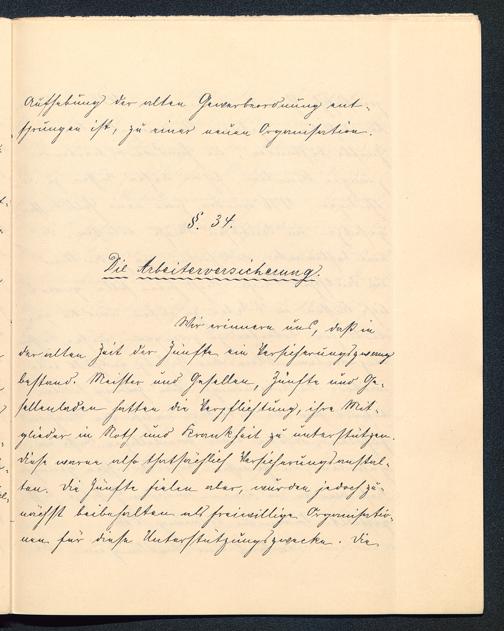 Aufhebung der alten Gewerbeordnung ent-
sprungen ist, zu einer neuen Organisation.
§. 34.
Die Arbeiterversicherung.
Wir erinnern uns, daß in
der alten Zeit der Zünfte ein Versicherungszwang
bestand. Meister und Gesellen, Zünfte und Ge-
sellenladen hatten die Verpflichtung, ihre Mit-
glieder in Noth und Krankheit zu unterstützen.
Diese waren also thatsächlich Versicherungsanstal-
ten. Die Zünfte fielen aber, wurden jedoch zu-
nächst beibehalten als freiwillige Organisatio-
nen für diese Unterstützungszwecke. Die